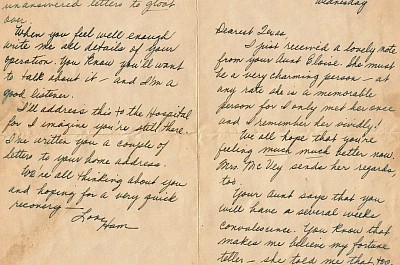 Wednesday
Dearest
I just received a lovely note
from your Aunt Eloise. She must
be a very charming person - at
any rate she is a memorable
person for I only met her once
and I remember her vividly!
We all hope that you're
feeling much much better now.
Mrs. McVey sends her regards,
too.
Your Aunt says that you
will have a several weeks
convalescence. You know that
makes me believe my fortune
teller - she told me that
unanswered letters to gloat
over.
When you feel well enough
write me all details of your
operation. You know you'll want
to talk about it - and I'm a
good listener.
I'll address this to the Hospital
for I imagine you're still there.
I've written you a couple of
letters to your home address.
We're all thinking about you
and hoping for a very quick
recovery -
Love